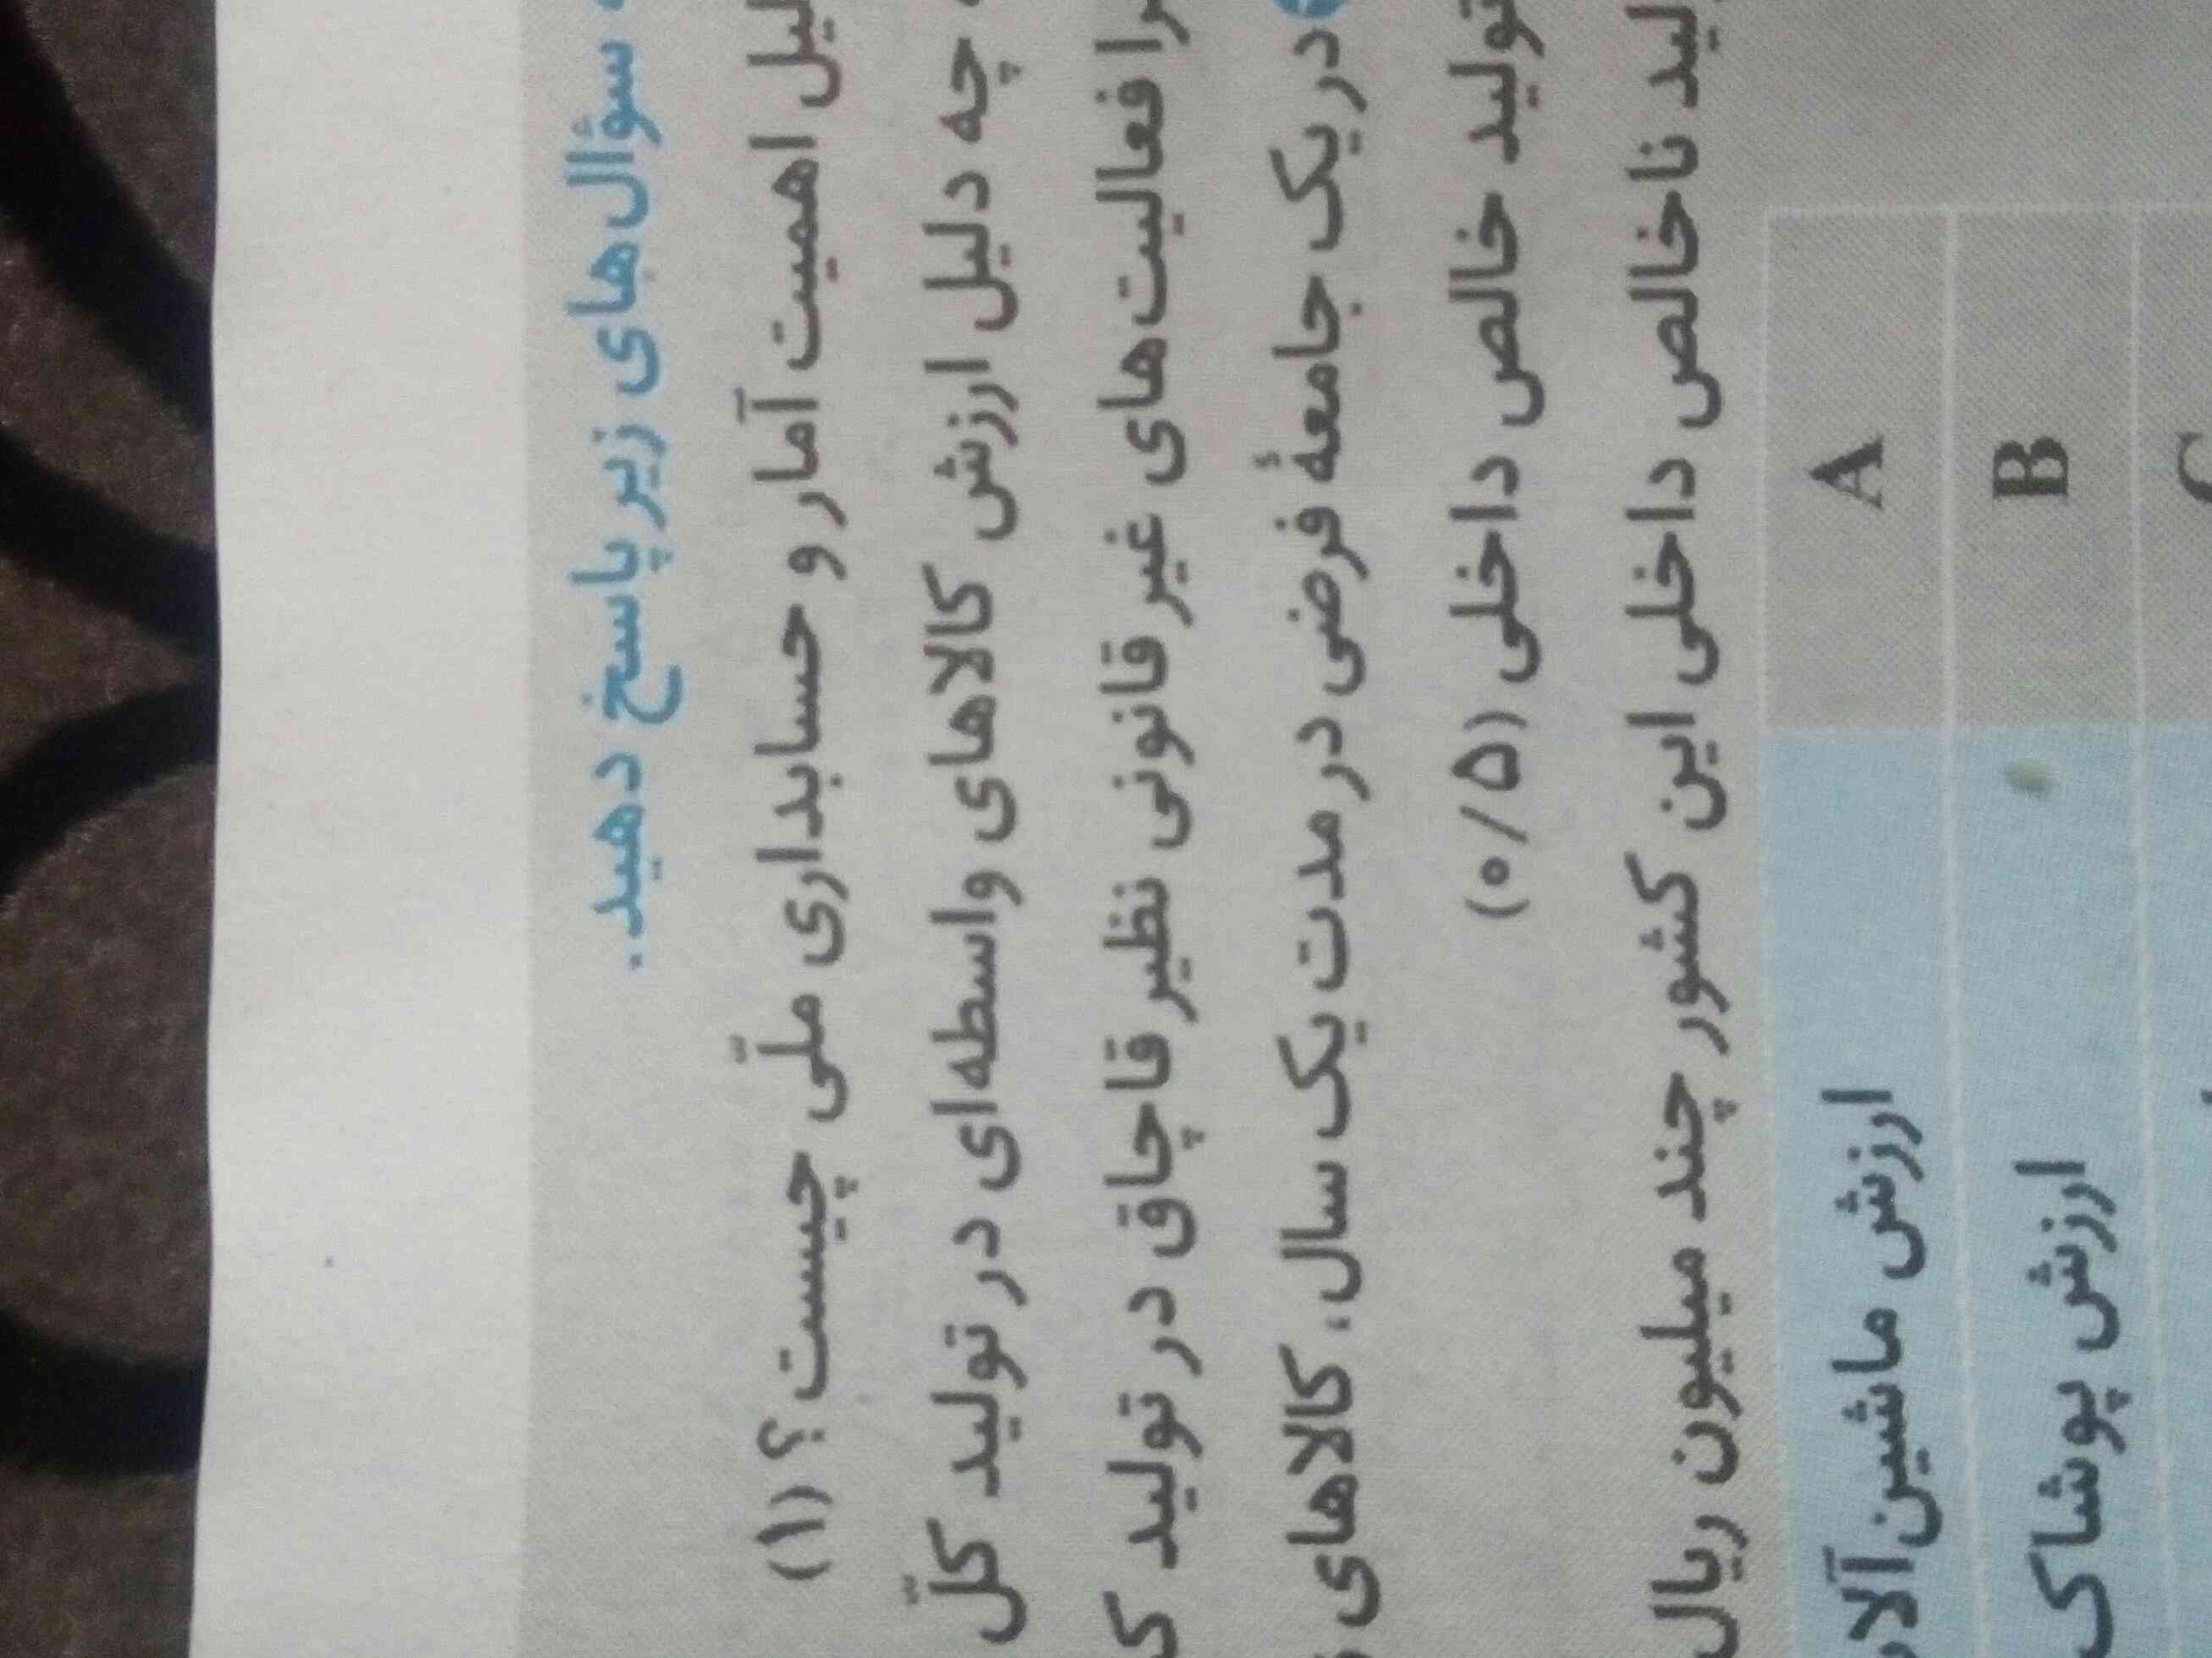 سؤال‌های زیر پاسخ دهید.
اهمیت آمار و حسابداری ملّی چیست؟ (۱)
چه دلیل ارزش کالاهای واسطه‌ای در تولید کلّ
فعالیت‌های غیر قانونی نظیر قاچاق در تولید
در یک جامعهٔ فرضی در مدت یک سال، کالاهای
تولید خالص داخلی (۰/۵)
ناخالص داخلی این کشور چند میلیون ریال
A ارزش ماشین‌آلا
B ارزش پوشاک